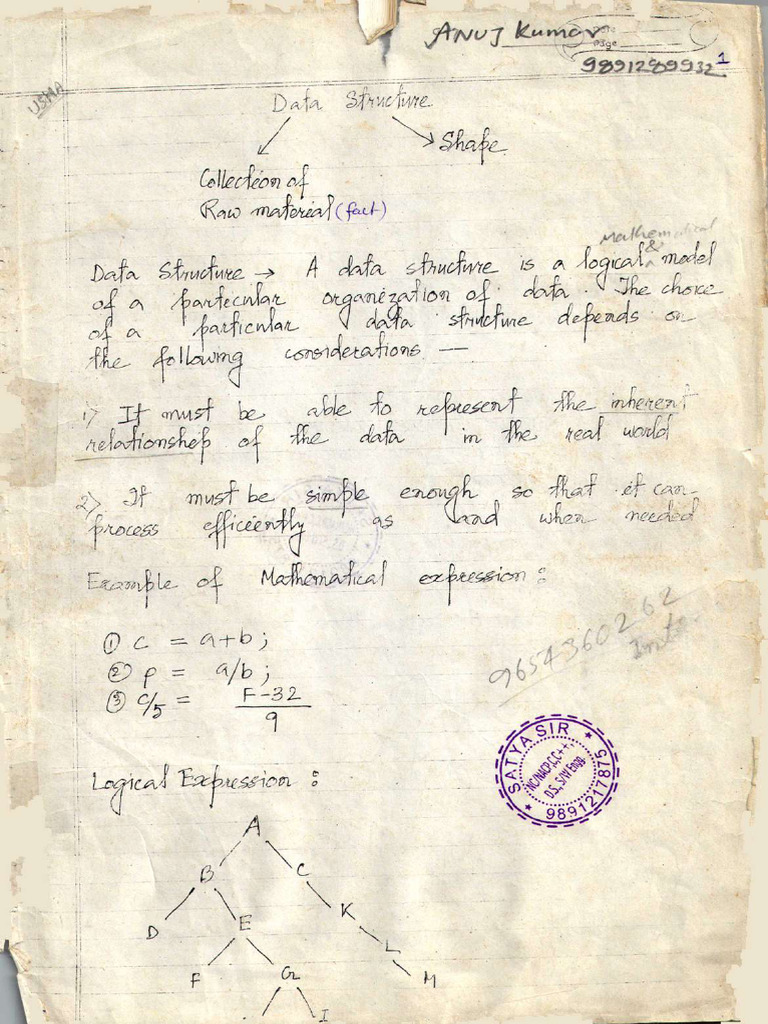 ANUJ Kumar
9891289932
1
USHA
Data Structure
Shape
Collection of
Raw material (fact)
Mathematical
&
Data Structure → A data structure is a logical model
of a particular organization of data. The choice
of a particular data structure depends on
the following considerations. —
1) It must be able to represent the inherent
relationship of the data in the real world
2) It must be simple enough so that it can
process efficiently as and when needed
Example of Mathematical expression :
① c = a+b ;
② p = a/b ;
③ C/5 = F-32
9
9654360262
SATYA SIR
D.S, S/W Engg.
9891217875
Logical Expression :
A
B C
D E K
L
F G M
I